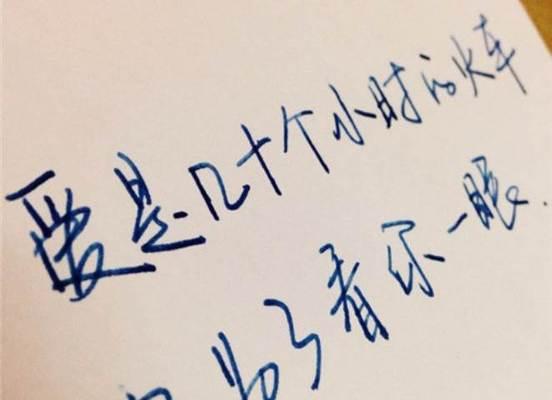 爱是几十个小时的火车
为了看你一眼.